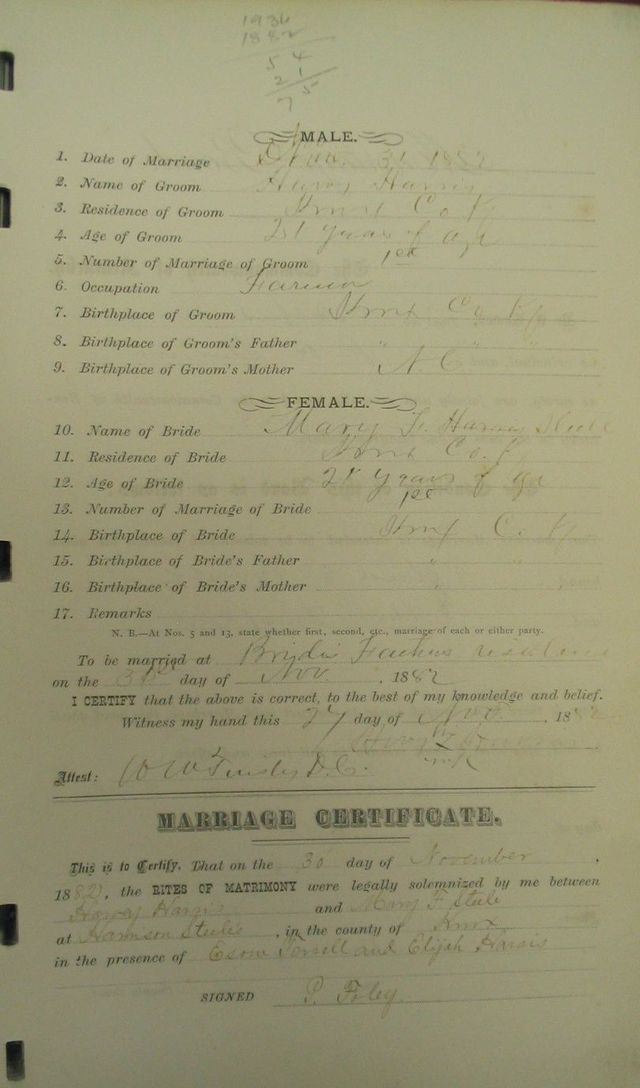 1936
1882
5 4
2 1
7 5
MALE.
1. Date of Marriage Nov. 3 1882
2. Name of Groom Harvey Harris
3. Residence of Groom Knox Co Ky
4. Age of Groom 21 years of age
5. Number of Marriage of Groom 1st
6. Occupation Farmer
7. Birthplace of Groom Knox Co. Ky
8. Birthplace of Groom's Father " " "
9. Birthplace of Groom's Mother N. C
FEMALE.
10. Name of Bride Mary
11. Residence of Bride Knox Co. Ky
12. Age of Bride years of age
13. Number of Marriage of Bride 1st
14. Birthplace of Bride Knox C. Ky
15. Birthplace of Bride's Father "
16. Birthplace of Bride's Mother "
17. Remarks
N. B.—At Nos. 5 and 13, state whether first, second, etc., marriage of each or either party.
To be married at Brides Fathers residence
on the day of Nov , 1882
I CERTIFY that the above is correct, to the best of my knowledge and belief.
Witness my hand this 27 day of Nov , 1882
Attest: W W Tinsley D.C.
MARRIAGE CERTIFICATE.
This is to Certify, That on the 30 day of November ,
1882, the RITES OF MATRIMONY were legally solemnized by me between
Harvey Harris and Mary F Steele
at Harmson Steeles , in the county of Knox
in the presence of and Elijah Harris
SIGNED P. Foley